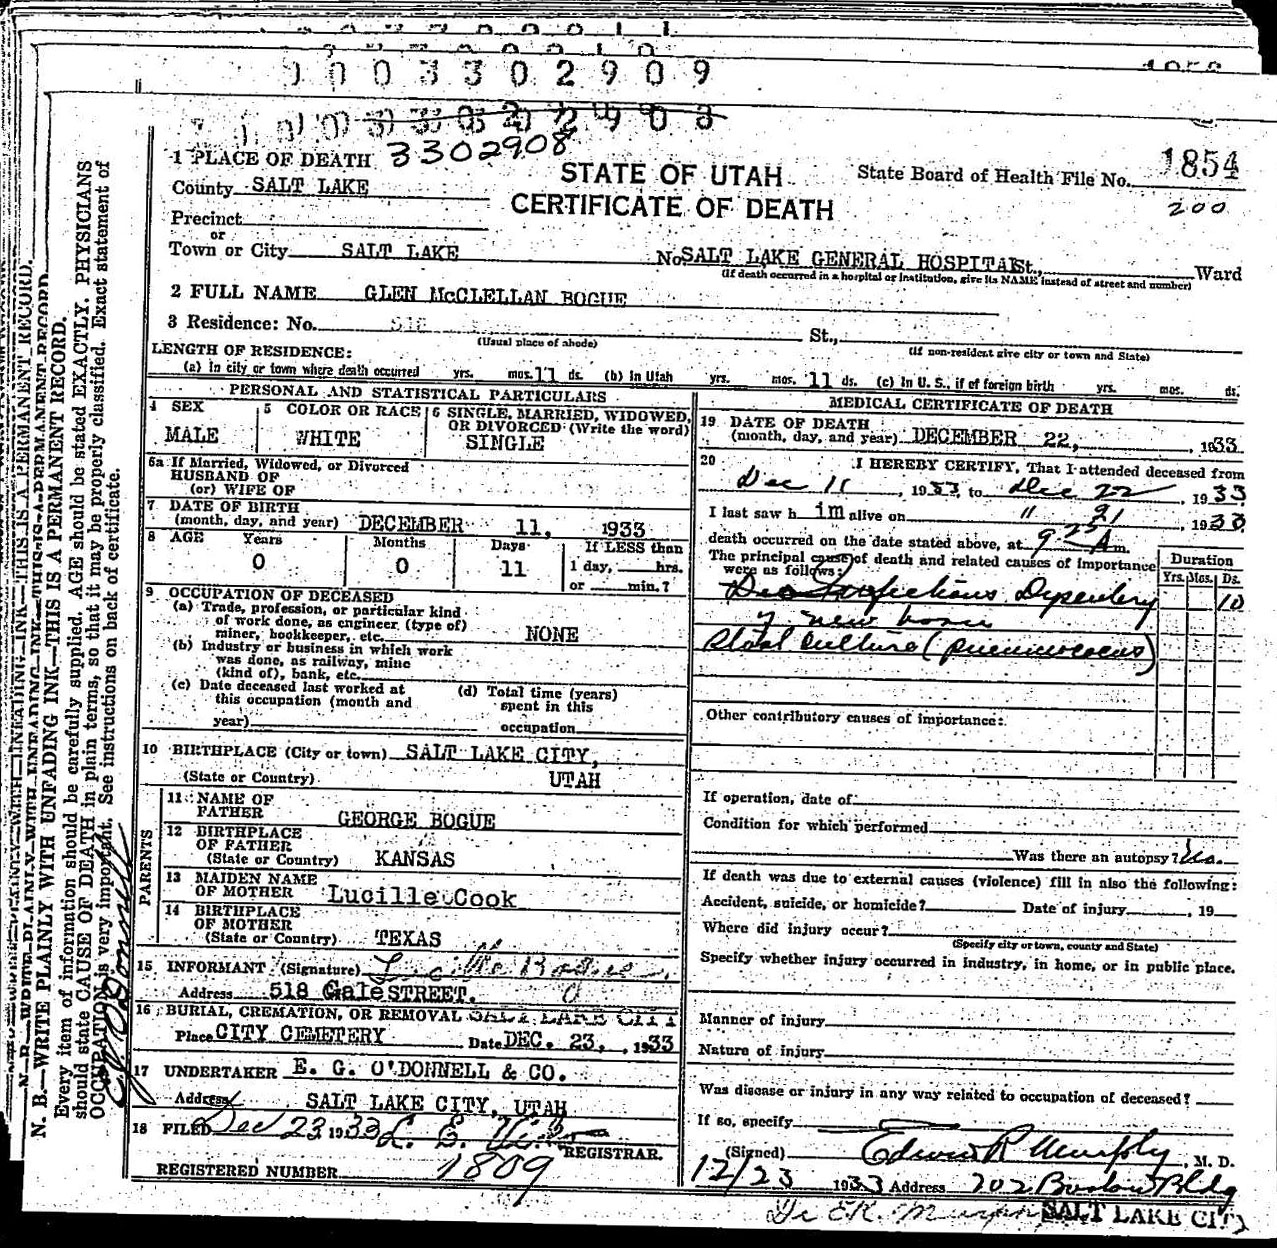 0003302909
3302908
1 PLACE OF DEATH
STATE OF UTAH
CERTIFICATE OF DEATH
State Board of Health File No. 1854
200
County SALT LAKE
Precinct
or
Town or City SALT LAKE No. SALT LAKE GENERAL HOSPITAL St., Ward
(If death occurred in a hospital or institution, give its NAME instead of street and number)
2 FULL NAME GLEN McCLELLAN BOGUE
3 Residence: No. 518 St.,
(Usual place of abode) (If non-resident give city or town and State)
LENGTH OF RESIDENCE:
(a) In city or town where death occurred yrs. mos. 11 ds. (b) In Utah yrs. mos. 11 ds. (c) In U. S., if of foreign birth yrs. mos. ds.
PERSONAL AND STATISTICAL PARTICULARS
4 SEX
MALE
5 COLOR OR RACE
WHITE
6 SINGLE, MARRIED, WIDOWED, OR DIVORCED (Write the word)
SINGLE
6a If Married, Widowed, or Divorced
HUSBAND OF
(or) WIFE OF
7 DATE OF BIRTH
(month, day, and year) DECEMBER 11, 1933
8 AGE Years Months Days If LESS than
0 0 11 1 day, hrs.
or min.?
9 OCCUPATION OF DECEASED
(a) Trade, profession, or particular kind
of work done, as engineer (type of)
miner, bookkeeper, etc. NONE
(b) Industry or business in which work
was done, as railway, mine
(kind of), bank, etc.
(c) Date deceased last worked at
this occupation (month and
year)
(d) Total time (years)
spent in this
occupation
10 BIRTHPLACE (City or town) SALT LAKE CITY,
(State or Country) UTAH
PARENTS
11 NAME OF
FATHER GEORGE BOGUE
12 BIRTHPLACE
OF FATHER
(State or Country) KANSAS
13 MAIDEN NAME
OF MOTHER Lucille Cook
14 BIRTHPLACE
OF MOTHER
(State or Country) TEXAS
15 INFORMANT (Signature) Lucille Bogue
Address 518 Gale STREET.
16 BURIAL, CREMATION, OR REMOVAL SALT LAKE CITY
Place CITY CEMETERY Date DEC. 23, 1933
17 UNDERTAKER E. G. O'DONNELL & CO.
Address SALT LAKE CITY, UTAH
18 FILED Dec 23 1933 L. E.
REGISTRAR.
REGISTERED NUMBER 1809
MEDICAL CERTIFICATE OF DEATH
19 DATE OF DEATH
(month, day, and year) DECEMBER 22, 1933
20 I HEREBY CERTIFY, That I attended deceased from
Dec 11, 1933 to Dec 22, 1933
I last saw him alive on " 21, 1933
death occurred on the date stated above, at 9 25 A m.
The principal cause of death and related causes of importance
were as follows:
Duration
Yrs. Mos. Ds.
Infectious Dysentery 10
of new born
Stool Culture (pneumococcus)
Other contributory causes of importance:
If operation, date of
Condition for which performed
Was there an autopsy? No.
If death was due to external causes (violence) fill in also the following:
Accident, suicide, or homicide? Date of injury , 19
Where did injury occur?
(Specify city or town, county and State)
Specify whether injury occurred in industry, in home, or in public place.
Manner of injury
Nature of injury
Was disease or injury in any way related to occupation of deceased?
If so, specify
(Signed) Edwin R Murphy, M. D.
12/23 1933 Address 702 Boston Bldg
Dr ER. Murphy SALT LAKE CITY
N. B.—WRITE PLAINLY WITH UNFADING INK—THIS IS A PERMANENT RECORD.
Every item of information should be carefully supplied. AGE should be stated EXACTLY. PHYSICIANS
should state CAUSE OF DEATH in plain terms, so that it may be properly classified. Exact statement of
OCCUPATION is very important. See instructions on back of certificate.